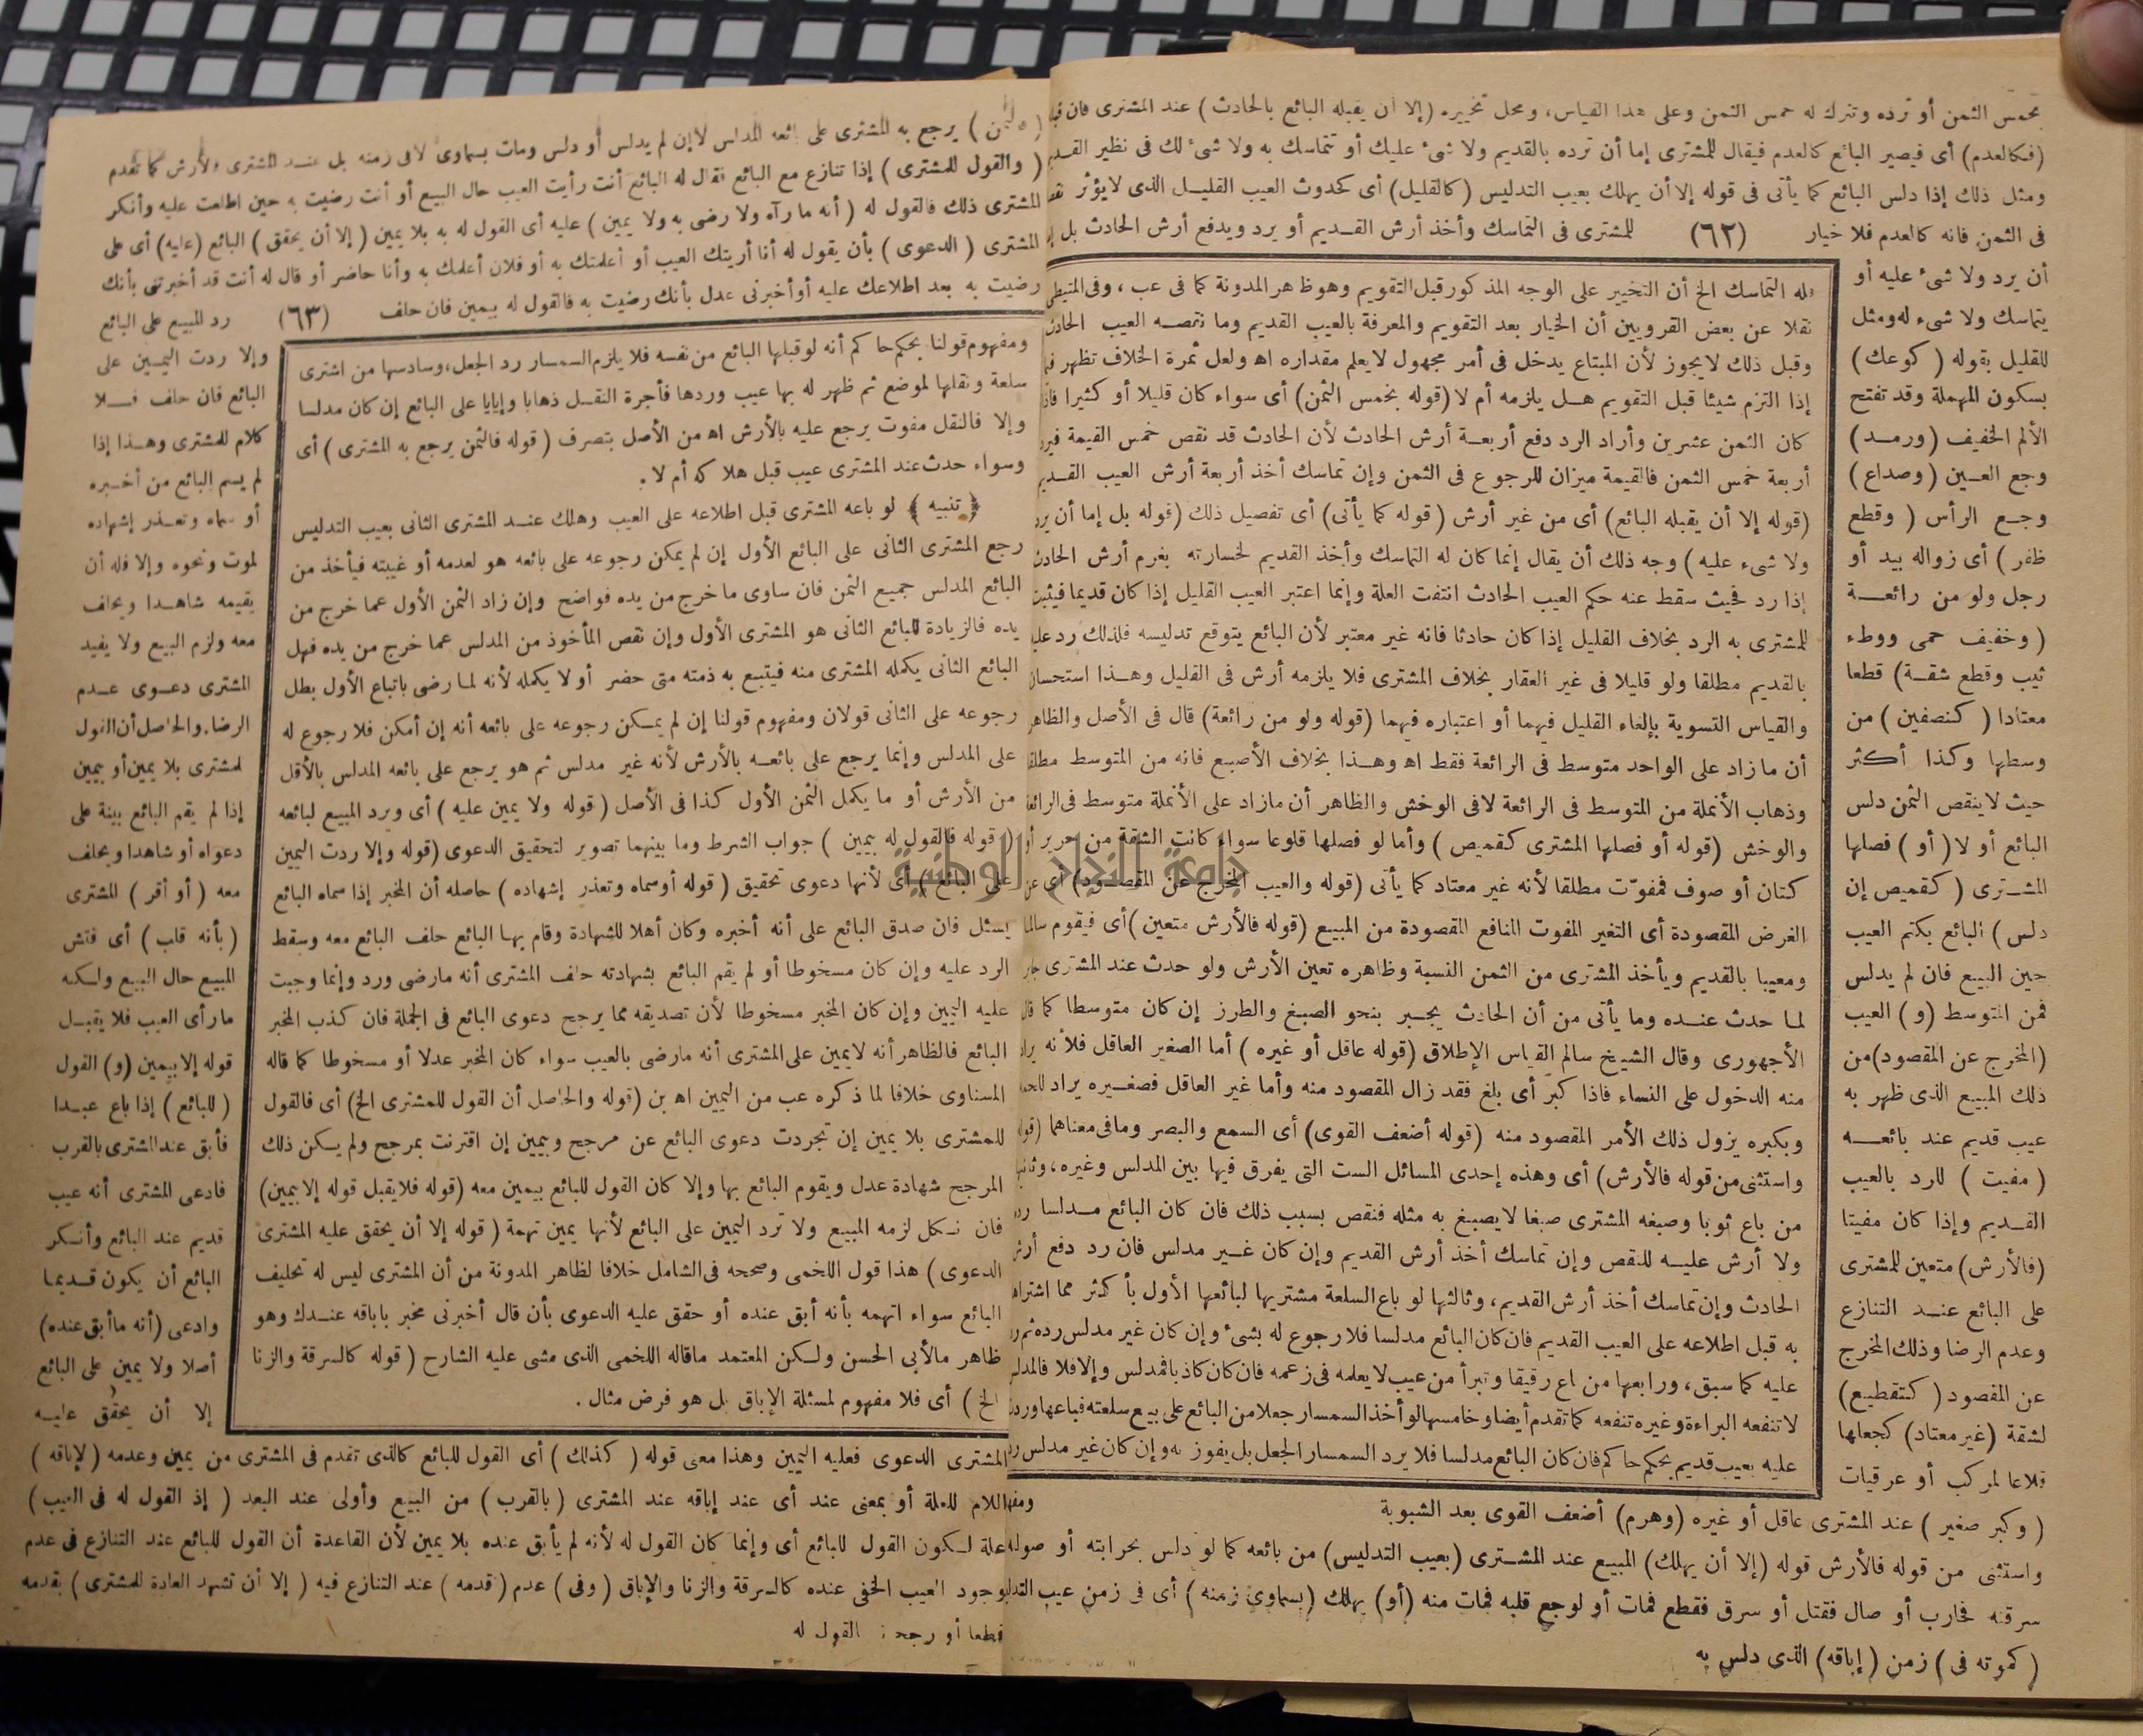 بخمس الثمن أو ترده وتترك له خمس الثمن وعلى هذا القياس، ومحل تخييره (إلا أن يقبله البائع بالحادث) عند المشترى فان
(فكالعدم) أى فيصير البائع كالعدم فيقال للمشترى إما أن ترده بالقديم ولا شىء عليك أو تتماسك به ولا شىء لك فى نظير
ومثل ذلك إذا دلس البائع كما يأتى فى قوله إلا أن يهلك بعيب التدليس (كالقليل) أى كحدوث العيب القليل الذى لا يؤثر
فى الثمن فانه كالعدم فلا خيار (٦٢) للمشترى فى التماسك وأخذ أرش القديم أو يرد ويدفع أرش الحادث بل
أن يرد ولا شىء عليه أو
يتماسك ولا شىء له ومثل
للقليل بقوله (كوعك)
بسكون المهملة وقد تفتح
الألم الخفيف (ورمد)
وجع العين (وصداع)
وجع الرأس (وقطع
ظفر) أى زواله بيد أو
رجل ولو من رائعة
(وخفيف حمى ووطء
ثيب وقطع شقة) قطعا
معتادا (كنصفين) من
وسطها وكذا أكثر
حيث لا ينقص الثمن دلس
البائع أو لا (أو) فصلها
المشترى (كقميص إن
دلس) البائع بكتم العيب
حين البيع فان لم يدلس
فمن المتوسط (و) العيب
(المخرج عن المقصود) من
ذلك المبيع الذى ظهر به
عيب قديم عند بائعه
(مفيت) للرد بالعيب
القديم وإذا كان مفيتا
(فالأرش) متعين للمشترى
على البائع عند التنازع
وعدم الرضا وذلك المخرج
عن المقصود (كتقطيع)
لشقة (غير معتاد) كجعلها
قلاعا لمركب أو عرقيات
فله التماسك الخ أن التخيير على الوجه المذكور قبل التقويم وهو ظاهر المدونة كما فى عب، وفى
نقلا عن بعض القرويين أن الخيار بعد التقويم والمعرفة بالعيب القديم وما نقصه العيب الحادث
وقبل ذلك لا يجوز لأن المبتاع يدخل فى أمر مجهول لا يعلم مقداره اه ولعل ثمرة الخلاف تظهر
إذا التزم شيئا قبل التقويم هل يلزمه أم لا (قوله بخمس الثمن) أى سواء كان قليلا أو كثيرا
كان الثمن عشرين وأراد الرد دفع أربعة أرش الحادث لأن الحادث قد نقص خمس القيمة
أربعة خمس الثمن فالقيمة ميزان للرجوع فى الثمن وإن تماسك أخذ أربعة أرش العيب القديم
(قوله إلا أن يقبله البائع) أى من غير أرش (قوله كما يأتى) أى تفصيل ذلك (قوله بل إما أن يرد
ولا شىء عليه) وجه ذلك أن يقال إنما كان له التماسك وأخذ القديم لخسارته بغرم أرش الحادث
إذا رد فحيث سقط عنه حكم العيب الحادث انتفت العلة وإنما اعتبر العيب القليل إذا كان قديما فيثبت
للمشترى به الرد بخلاف القليل إذا كان حادثا فانه غير معتبر لأن البائع يتوقع تدليسه فلذلك رد عليه
بالقديم مطلقا ولو قليلا فى غير العقار بخلاف المشترى فلا يلزمه أرش فى القليل وهذا استحسان
والقياس التسوية بإلغاء القليل فيهما أو اعتباره فيهما (قوله ولو من رائعة) قال فى الأصل والظاهر
أن ما زاد على الواحد متوسط فى الرائعة فقط اه وهذا بخلاف الأصبع فانه من المتوسط مطلقا
وذهاب الأنملة من المتوسط فى الرائعة لا فى الوخش والظاهر أن مازاد على الأنملة متوسط فى الرائعة
والوخش (قوله أو فصلها المشترى كقميص) وأما لو فصلها قلوعا سواء كانت الشقة من حرير أو
كتان أو صوف فمفوّت مطلقا لأنه غير معتاد كما يأتى (قوله والعيب المخرج عن المقصود) أى عن
الغرض المقصودة أى التغير المفوت المنافع المقصودة من المبيع (قوله فالأرش متعين) أى فيقوم سالما
ومعيبا بالقديم ويأخذ المشترى من الثمن النسبة وظاهره تعين الأرش ولو حدث عند المشترى
لما حدث عنده وما يأتى من أن الحادث يجبر بنحو الصبغ والطرز إن كان متوسطا كما قال
الأجهورى وقال الشيخ سالم القياس الإطلاق (قوله عاقل أو غيره) أما الصغير العاقل فلأنه يراد
منه الدخول على النساء فاذا كبر أى بلغ فقد زال المقصود منه وأما غير العاقل فصغيره يراد
وبكبره يزول ذلك الأمر المقصود منه (قوله أضعف القوى) أى السمع والبصر وما فى معناهما (قوله
واستثنى من قوله فالأرش) أى وهذه إحدى المسائل الست التى يفرق فيها بين المدلس وغيره، وثانيها
من باع ثوبا وصبغه المشترى صبغا لا يصبغ به مثله فنقص بسبب ذلك فان كان البائع مدلسا رد
ولا أرش عليه للنقص وإن تماسك أخذ أرش القديم وإن كان غير مدلس فان رد دفع أرش
الحادث وإن تماسك أخذ أرش القديم، وثالثها لو باع السلعة مشتريها لبائعها الأول بأكثر مما اشتراها
به قبل اطلاعه على العيب القديم فان كان البائع مدلسا فلا رجوع له بشىء وإن كان غير مدلس رده ثم رد
عليه كما سبق، ورابعها من باع رقيقا وتبرأ من عيب لا يعلمه فى زعمه فان كان كاذبا فمدلس وإلا فلا فالمدلس
لا تنفعه البراءة وغيره تنفعه كما تقدم أيضا وخامسها لو أخذ السمسار جعلا من البائع على بيع سلعته فباعها وردت
عليه بعيب قديم بحكم حاكم فان كان البائع مدلسا فلا يرد السمسار الجعل بل يفوز به وإن كان غير مدلس رد
ومفهوم
(وكبر صغير) عند المشترى عاقل أو غيره (وهرم) أضعف القوى بعد الشبوبة
واستثنى من قوله فالأرش قوله (إلا أن يهلك) المبيع عند المشترى (بعيب التدليس) من بائعه كما لو دلس بحرابته أو صوله
سرقته فحارب أو صال فقتل أو سرق فقطع فمات أو لوجع قلبه فمات منه (أو) يهلك (بسماوى زمنه) أى فى زمن عيب
(كموته فى) زمن (إباقه) الذى دلس به
(فالثمن) يرجع به المشترى على بائعه المدلس لا إن لم يدلس أو دلس ومات بسماوى لا فى زمنه بل عند المشترى فالأرش كما تقدم
(والقول للمشترى) إذا تنازع مع البائع فقال له البائع أنت رأيت العيب حال البيع أو أنت رضيت به حين اطلعت عليه وأنكر
المشترى ذلك فالقول له (أنه ما رآه ولا رضى به ولا يمين) عليه أى القول له به بلا يمين (إلا أن يحقق) البائع (عليه) أى على
المشترى (الدعوى) بأن يقول له أنا أريتك العيب أو أعلمتك به أو فلان أعلمك به وأنا حاضر أو قال له أنت قد أخبرتنى بأنك
رضيت به بعد اطلاعك عليه أو أخبرنى عدل بأنك رضيت به فالقول له بيمين فان حلف (٦٣) رد المبيع على البائع
وإلا ردت اليمين على
البائع فان حلف فلا
كلام للمشترى وهذا إذا
لم يسم البائع من أخبره
أو سماه وتعذر إشهاده
لموت ونحوه وإلا فله أن
يقيمه شاهدا ويحلف
معه ولزم البيع ولا يفيد
المشترى دعوى عدم
الرضا. والحاصل أن القول
للمشترى بلا يمين أو بيمين
إذا لم يقم البائع بينة على
دعواه أو شاهدا ويحلف
معه (أو أقر) المشترى
(بأنه قلب) أى فتش
المبيع حال البيع ولكنه
ما رأى العيب فلا يقبل
قوله إلا بيمين (و) القول
(للبائع) إذا باع عبدا
فأبق عند المشترى بالقرب
فادعى المشترى أنه عيب
قديم عند البائع وأنكر
البائع أن يكون قديما
وادعى (أنه ما أبق عنده)
أصلا ولا يمين على البائع
إلا أن يحقق عليه
ومفهوم قولنا بحكم حاكم أنه لو قبلها البائع من نفسه فلا يلزم السمسار رد الجعل، وسادسها من اشترى
سلعة ونقلها لموضع ثم ظهر له بها عيب وردها فأجرة النقل ذهابا وإيابا على البائع إن كان مدلسا
وإلا فالنقل مفوت يرجع عليه بالأرش اه من الأصل بتصرف (قوله فالثمن يرجع به المشترى) أى
وسواء حدث عند المشترى عيب قبل هلاكه أم لا.
﴿تنبيه﴾ لو باعه المشترى قبل اطلاعه على العيب وهلك عند المشترى الثانى بعيب التدليس
رجع المشترى الثانى على البائع الأول إن لم يمكن رجوعه على بائعه هو لعدمه أو غيبته فيأخذ من
البائع المدلس جميع الثمن فان ساوى ما خرج من يده فواضح وإن زاد الثمن الأول عما خرج من
يده فالزيادة للبائع الثانى هو المشترى الأول وإن نقص المأخوذ من المدلس عما خرج من يده فهل
البائع الثانى يكمله المشترى منه فيتبع به ذمته متى حضر أو لا يكمله لأنه لما رضى باتباع الأول بطل
رجوعه على الثانى قولان ومفهوم قولنا إن لم يمكن رجوعه على بائعه أنه إن أمكن فلا رجوع له
على المدلس وإنما يرجع على بائعه بالأرش لأنه غير مدلس ثم هو يرجع على بائعه المدلس بالأقل
من الأرش أو ما يكمل الثمن الأول كذا فى الأصل (قوله ولا يمين عليه) أى ويرد المبيع لبائعه
(قوله فالقول له بيمين) جواب الشرط وما بينهما تصوير لتحقيق الدعوى (قوله وإلا ردت اليمين
على البائع) أى لأنها دعوى تحقيق (قوله أو سماه وتعذر إشهاده) حاصله أن المخبر إذا سماه البائع
يسئل فان صدق البائع على أنه أخبره وكان أهلا للشهادة وقام بها البائع حلف البائع معه وسقط
الرد عليه وإن كان مسخوطا أو لم يقم البائع بشهادته حلف المشترى أنه ما رضى ورد وإنما وجبت
عليه اليمين وإن كان المخبر مسخوطا لأن تصديقه مما يرجح دعوى البائع فى الجملة فان كذب المخبر
البائع فالظاهر أنه لا يمين على المشترى أنه ما رضى بالعيب سواء كان المخبر عدلا أو مسخوطا كما قاله
المسناوى خلافا لما ذكره عب من اليمين اه بن (قوله والحاصل أن القول للمشترى الخ) أى فالقول
للمشترى بلا يمين إن تجردت دعوى البائع عن مرجح وبيمين إن اقترنت بمرجح ولم يكن ذلك
المرجح شهادة عدل ويقوم البائع بها وإلا كان القول للبائع بيمين معه (قوله فلا يقبل قوله إلا بيمين)
فان نكل لزمه المبيع ولا ترد اليمين على البائع لأنها يمين تهمة (قوله إلا أن يحقق عليه المشترى
الدعوى) هذا قول اللخمى وصححه فى الشامل خلافا لظاهر المدونة من أن المشترى ليس له تحليف
البائع سواء اتهمه بأنه أبق عنده أو حقق عليه الدعوى بأن قال أخبرنى مخبر باباقه عندك وهو
ظاهر ما لأبى الحسن ولكن المعتمد ما قاله اللخمى الذى مشى عليه الشارح (قوله كالسرقة والزنا
الخ) أى فلا مفهوم لمسئلة الإباق بل هو فرض مثال.
المشترى الدعوى فعليه اليمين وهذا معنى قوله (كذلك) أى القول للبائع كالذى تقدم فى المشترى من يمين وعدمه (لإباقه)
اللام للعلة أو بمعنى عند أى عند إباقه عند المشترى (بالقرب) من البيع وأولى عند البعد (إذ القول له فى العيب)
علة لكون القول للبائع أى وإنما كان القول له لأنه لم يأبق عنده بلا يمين لأن القاعدة أن القول للبائع عند التنازع فى عدم
وجود العيب الخفى عنده كالسرقة والزنا والإباق (وفى) عدم (قدمه) عند التنازع فيه (إلا أن تشهد العادة للمشترى) بقدمه
قطعا أو رجحت القول له
جامعة النجاح الوطنية